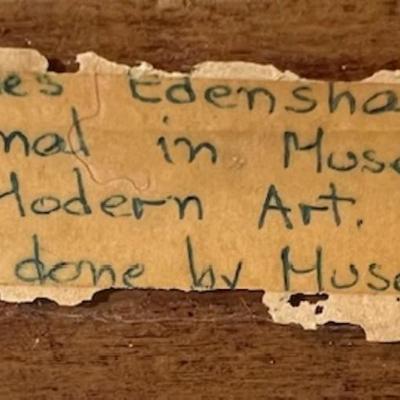 es Edensha
nal in Muse
Modern Art.
done by Muse